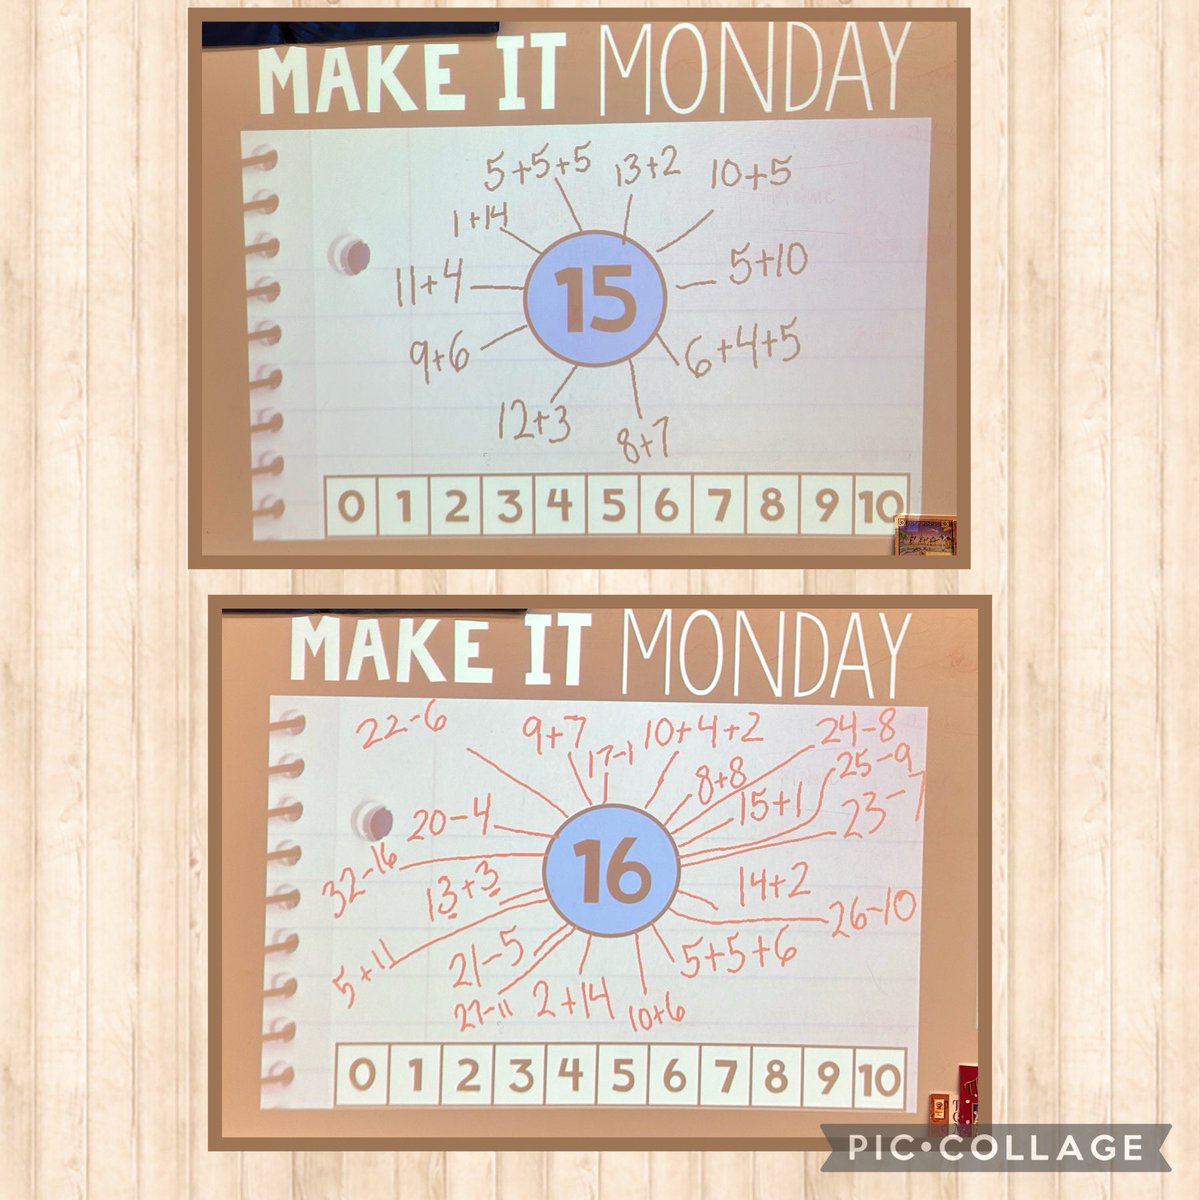 MAKE IT MONDAY
5+5+5 13+2 10+5
1+14
11+4 15 5+10
9+6 6+4+5
12+3 8+7
0 1 2 3 4 5 6 7 8 9 10
MAKE IT MONDAY
22-6 9+7 10+4+2 24-8
17-1 25-9
8+8
20-4 15+1 23-7
32-16 16
13+3 14+2
26-10
5+11 21-5 5+5+6
27-11 2+14 10+6
0 1 2 3 4 5 6 7 8 9 10
PIC•COLLAGE